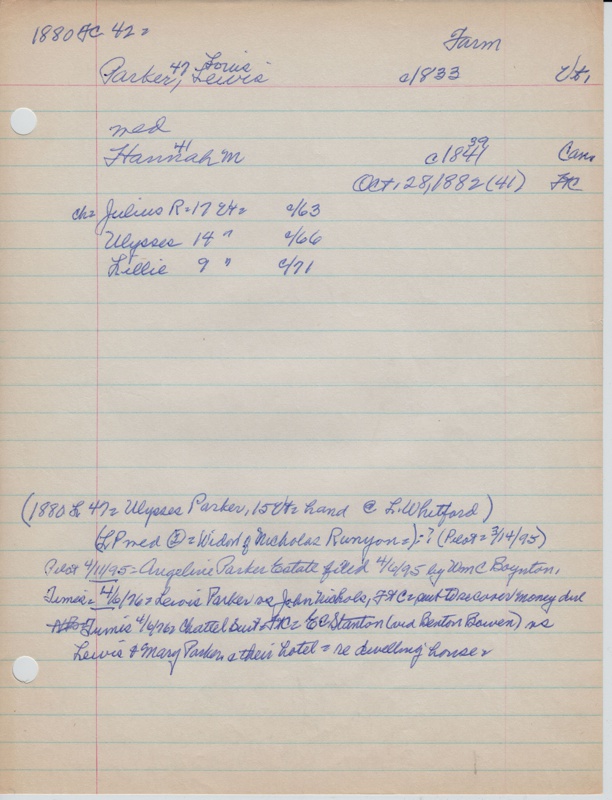 1880 FC 42 =
Farm
Parker, 47 Louis Lewis c1833 Vt.
med
Hannah M 41 c1841 39 Can
Oct. 28, 1882 (41) FC
ch = Julius R = 17 Vt = c/63
Ulysses 14 " c/66
Lillie 9 " c/71
(1880 L 47 = Ulysses Parker, 15 Vt = hand @ L. Whitford)
(L P med ② = Widow of Nicholas Runyon =) - ? (Pilot = 3/14/95)
Pilot 4/11/95 = Angeline Parker Estate filed 4/6/95 by Wm C Boynton.
Times = 4/6/76 = Lewis Parker vs John Nichols, FC = suit to recover money due
Times 4/6/76 = Chattel suit FC = E C Stanton (via Benton Bowen) vs
Lewis & Mary Parker & their hotel = re dwelling house